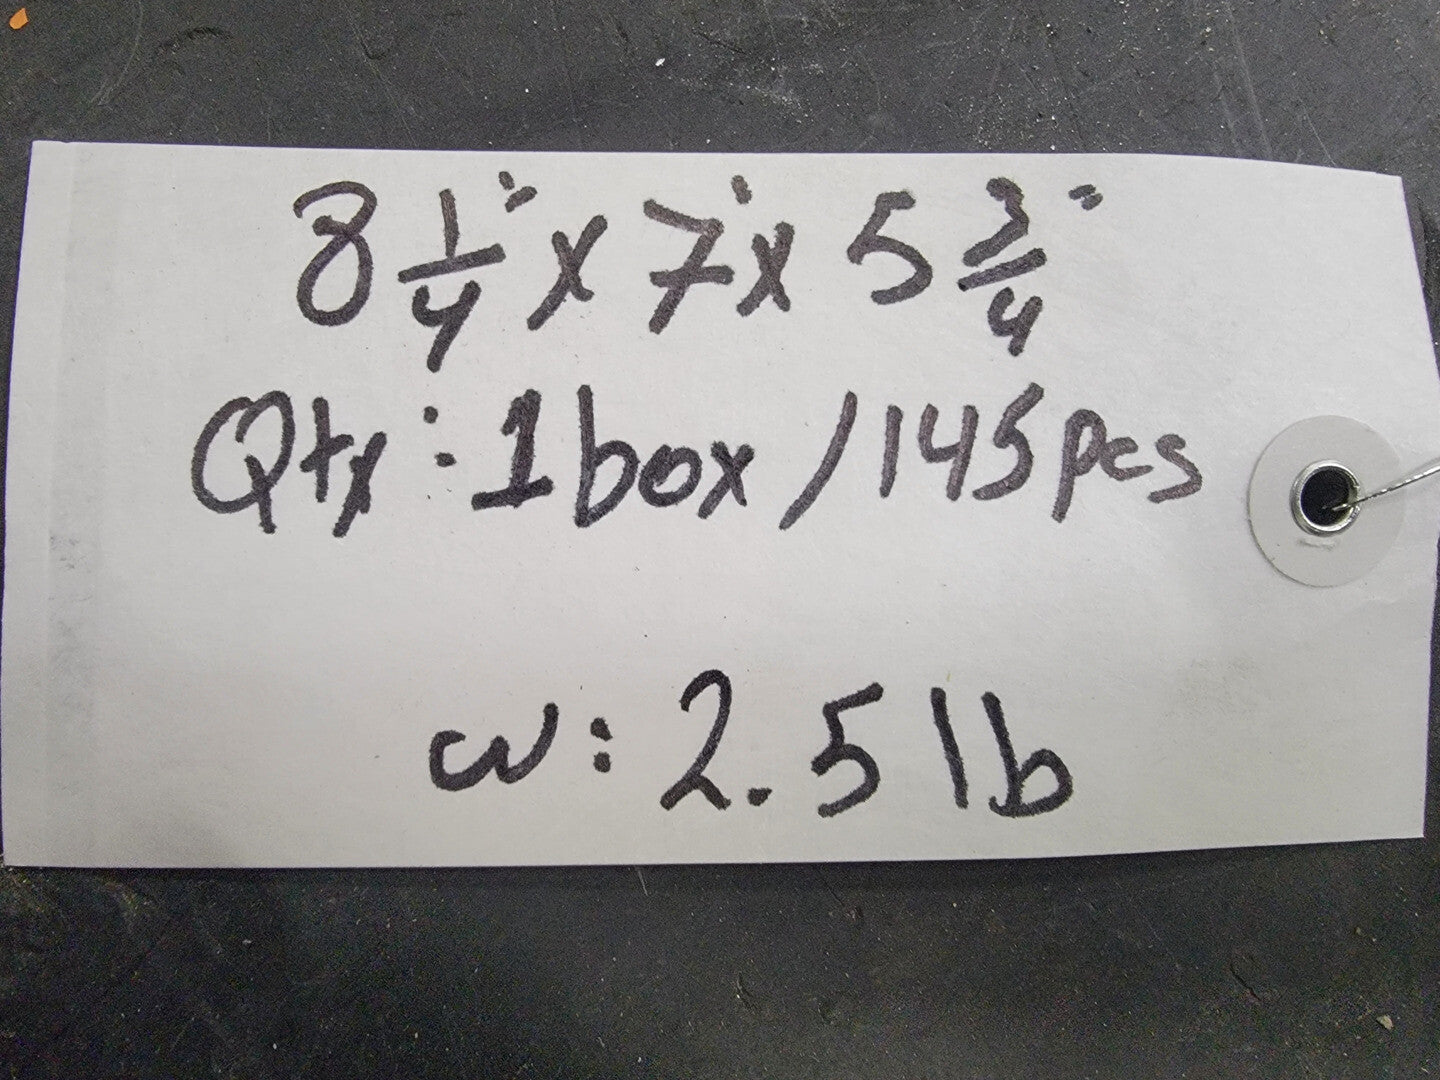 8 1/4" x 7" x 5 3/4"
Qty: 1 box / 145 pcs
w: 2.5 lb